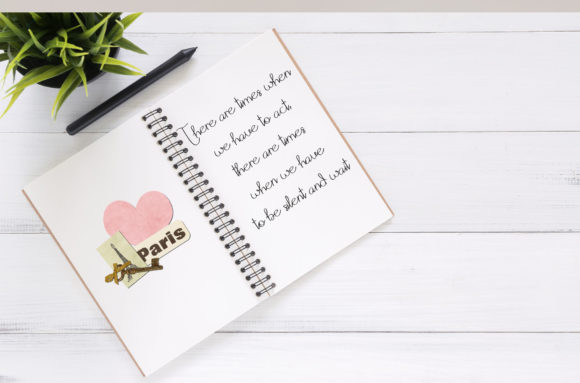 Paris
There are times when
we have to act,
there are times
when we have
to be silent and wait